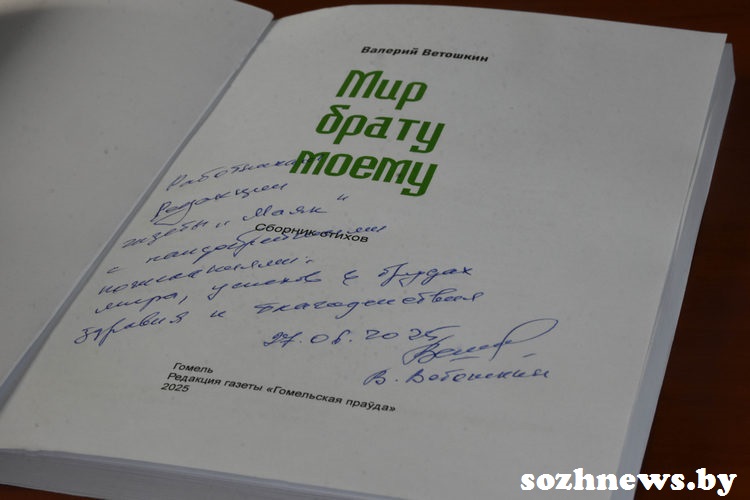 Валерий Ветошкин
Мир
брату
моему
Работникам
редакции
газеты "Маяк"
Сборник стихов
с наидобрейшими
пожеланиями:
мира, успехов в трудах
здравия и благоденствия
27.08.2025
В. Ветошкин
Гомель
Редакция газеты «Гомельская праўда»
2025
sozhnews.by